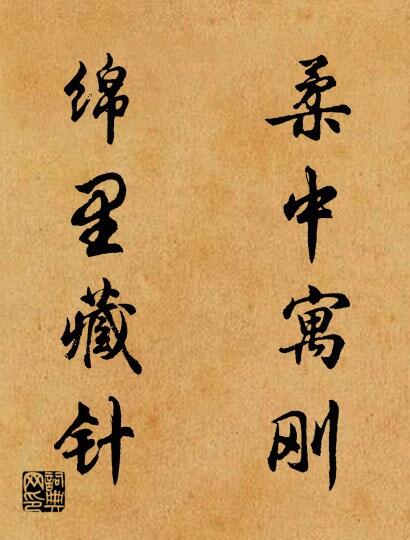 柔中寓刚
绵里藏针
詞典网印